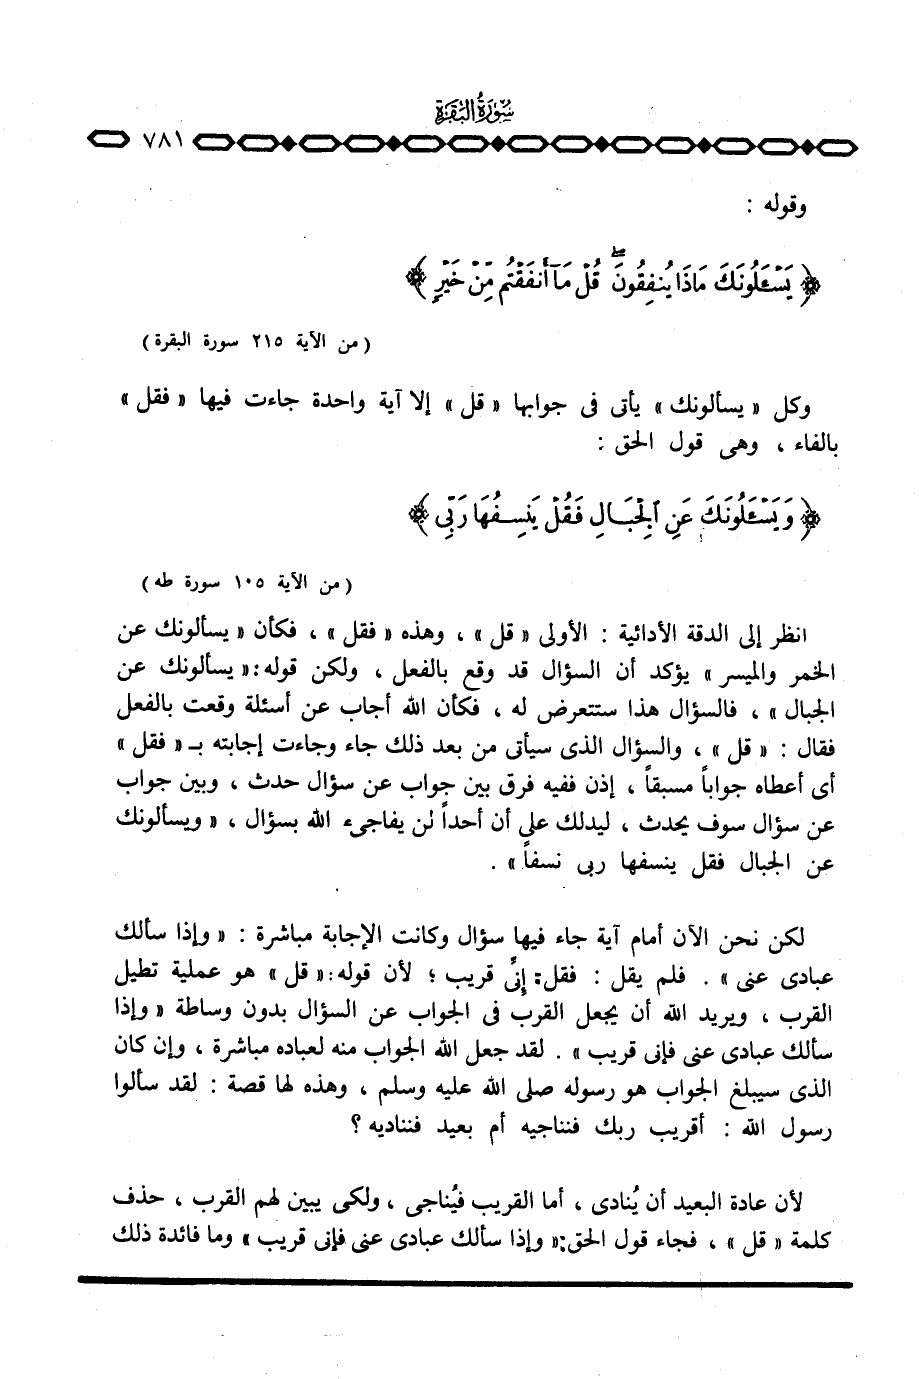 سورة البقرة
٧٨١
وقوله :
﴿ يَسْـَٔلُونَكَ مَاذَا يُنفِقُونَ ۖ قُلْ مَآ أَنفَقْتُم مِّنْ خَيْرٍ ﴾
( من الآية ٢١٥ سورة البقرة )
وكل « يسألونك » يأتى فى جوابها « قل » إلا آية واحدة جاءت فيها « فقل »
بالفاء ، وهى قول الحق :
﴿ وَيَسْـَٔلُونَكَ عَنِ ٱلْجِبَالِ فَقُلْ يَنسِفُهَا رَبِّى ﴾
( من الآية ١٠٥ سورة طه )
انظر إلى الدقة الأدائية : الأولى « قل » ، وهذه « فقل » ، فكأن « يسألونك عن
الخمر والميسر » يؤكد أن السؤال قد وقع بالفعل ، ولكن قوله :« يسألونك عن
الجبال » ، فالسؤال هذا ستتعرض له ، فكأن الله أجاب عن أسئلة وقعت بالفعل
فقال : « قل » ، والسؤال الذى سيأتى من بعد ذلك جاء وجاءت إجابته بـ « فقل »
أى أعطاه جواباً مسبقاً ، إذن ففيه فرق بين جواب عن سؤال حدث ، وبين جواب
عن سؤال سوف يحدث ، ليدلك على أن أحداً لن يفاجىء الله بسؤال ، « ويسألونك
عن الجبال فقل ينسفها ربى نسفاً » .
لكن نحن الآن أمام آية جاء فيها سؤال وكانت الإجابة مباشرة : « وإذا سألك
عبادى عنى » . فلم يقل : فقل : إنِّى قريب ؛ لأن قوله :« قل » هو عملية تطيل
القرب ، ويريد الله أن يجعل القرب فى الجواب عن السؤال بدون وساطة « وإذا
سألك عبادى عنى فإنى قريب » . لقد جعل الله الجواب منه لعباده مباشرة ، وإن كان
الذى سيبلغ الجواب هو رسوله صلى الله عليه وسلم ، وهذه لها قصة : لقد سألوا
رسول الله : أقريب ربك فنناجيه أم بعيد فنناديه ؟
لأن عادة البعيد أن يُنادى ، أما القريب فيُناجى ، ولكى يبين لهم القرب ، حذف
كلمة « قل » ، فجاء قول الحق :« وإذا سألك عبادى عنى فإنى قريب » وما فائدة ذلك